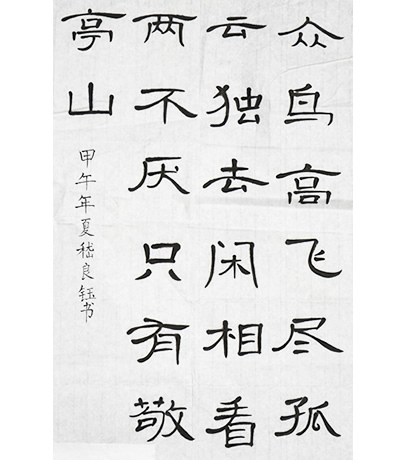 众鸟高飞尽孤
云独去闲相看
两不厌只有敬
亭山
甲午年夏嵇良钰书